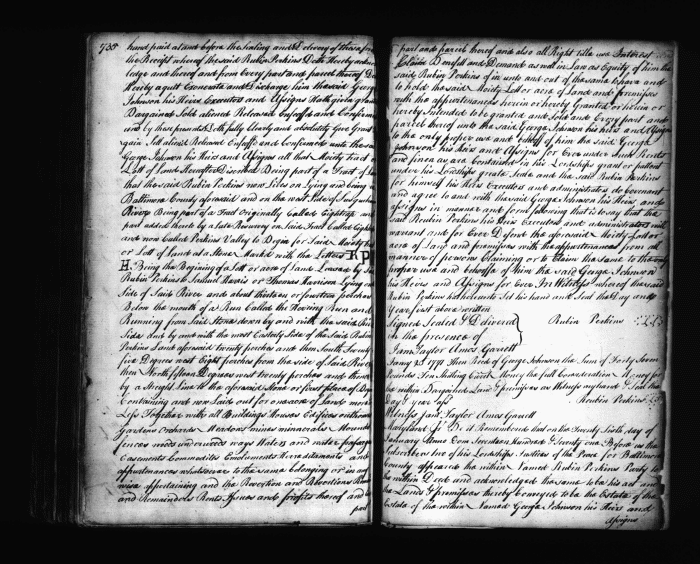 735
hand paid at and before the Sealing and Delivery of these
the Receipt whereof the said Rubin Perkins Doth Hereby
ledge and thereof and from Every part and parcel thereof
Hereby aquit Exonerate and Discharge him the said Georg
Johnson his Heirs Executors and Assigns Hath given
Bargained Sold aliened Released Enfeoffd and Confirm
and by these presents Doth fully Clearly and absolutely Give Grant
gain Sell aliened Released Enfeoff and Confirmed unto the
George Johnson his Heirs and Assigns all that Moiety Tract
Lott of Land Hereafter Discribed Being part of a Tract of
that the said Rubin Perkins now Lives on Lying and being
Baltimore County aforesaid and on the west Side of
River Being part of a Tract Originally Called
part added there to by a late Resurvey on Said Tract Called
and now Called Perkins Valley to Begin for Said Moiety
or Lott of Land at a Stone Markd with the Letters R P
H Being the Begining of a Lott or acre of land Leased by
Rubin Perkins to Samuel or Thomas Harrison Lying
Side of Said River and about thirteen or fourteen perches
Below the mouth of a Run Called the Herring Run and
Running from Said Stone down by and with the said
Side and by and with the most Easterly Side of the said Rubin
Perkins Land aforesaid twenty perches and then South Seventy
five Degrees west Eight perches from the Side of said River
then North fifteen Degrees west twenty perches and then
by a Streight Line to the aforesaid Stone or first place of
Containing and now laid out for one acre of land more
Less Together with all Buildings Houses Edifices
Gardens Orchards Meadows mines minnerals
fences woods underwoods ways Waters and water
Easments Commodities Emoliments Heriditaments and
appurtenances whatsoever to the same belonging or in any
wise appertaining and the Revertion and Revertions
and Remainders Rents Issues and profits thereof and
part
part and parcel thereof and also all Right title use Interest
Claim Benefit and Demands as well in Law as Equity of him the
said Rubin Perkins of in unto and out of the same to have and
to hold the said Moiety Lott or acre of Land and premisses
with the appurtenances herein or hereby Granted or herein or
hereby Intended to be granted and Sold and Every part and
parcel thereof unto the said George Johnson his heirs and Assigns
to the only proper use and behoff of him the said George
Johnson his Heirs and Assigns for Ever under Such Rents
and fines as are Contained in his Lordships grant or pattent
under his Lordships great Seale and the Said Rubin Perkins
for himself his Heirs Executors and administrators do Covenant
and agree to and with the said George Johnson his Heirs and
Assigns in manner and form following that is to say that the
said Reubin Perkins his Heirs Executors and administrators will
warrant and for Ever Defend the aforesaid Moiety Lott or
acre of Land and premisses with the appurtenances from all
manner of persons Claiming or to Claim the same to the only
proper use and behoffe of him the said George Johnson
his Heirs and Assigns for Ever In Witness whereof the said
Rubin Perkins hath hereunto Set his hand and Seal the Day and
Year first above written
Signed Sealed & Delivered
in the presence of
Rubin Perkins
Jam Taylor Amos Garrett
Jany 25 1771 Then Recd of George Johnson the Sum of Forty Seven
Pounds Ten Shilling Currt Money the full Consideration Money for
the within Bargained Land & premisses as Witness my hand & Seal the
Day & year afs
Reubin Perkins
Witness Jam Taylor Amos Garrett
Maryland Ss Be it Remembered that on the Twenty Sixth day of
January Anno Dom Seventeen Hundred & Seventy one Before us the
Subscribers two of his Lordships Justices of the Peace for Baltimore
County appeared the within Named Rubin Perkins Party to
the within Deed and acknowledged the same to be his act and
the Lands & premisses thereby conveyed to be the Estate of the
Estate of the within Named George Johnson his Heirs and
Assigns